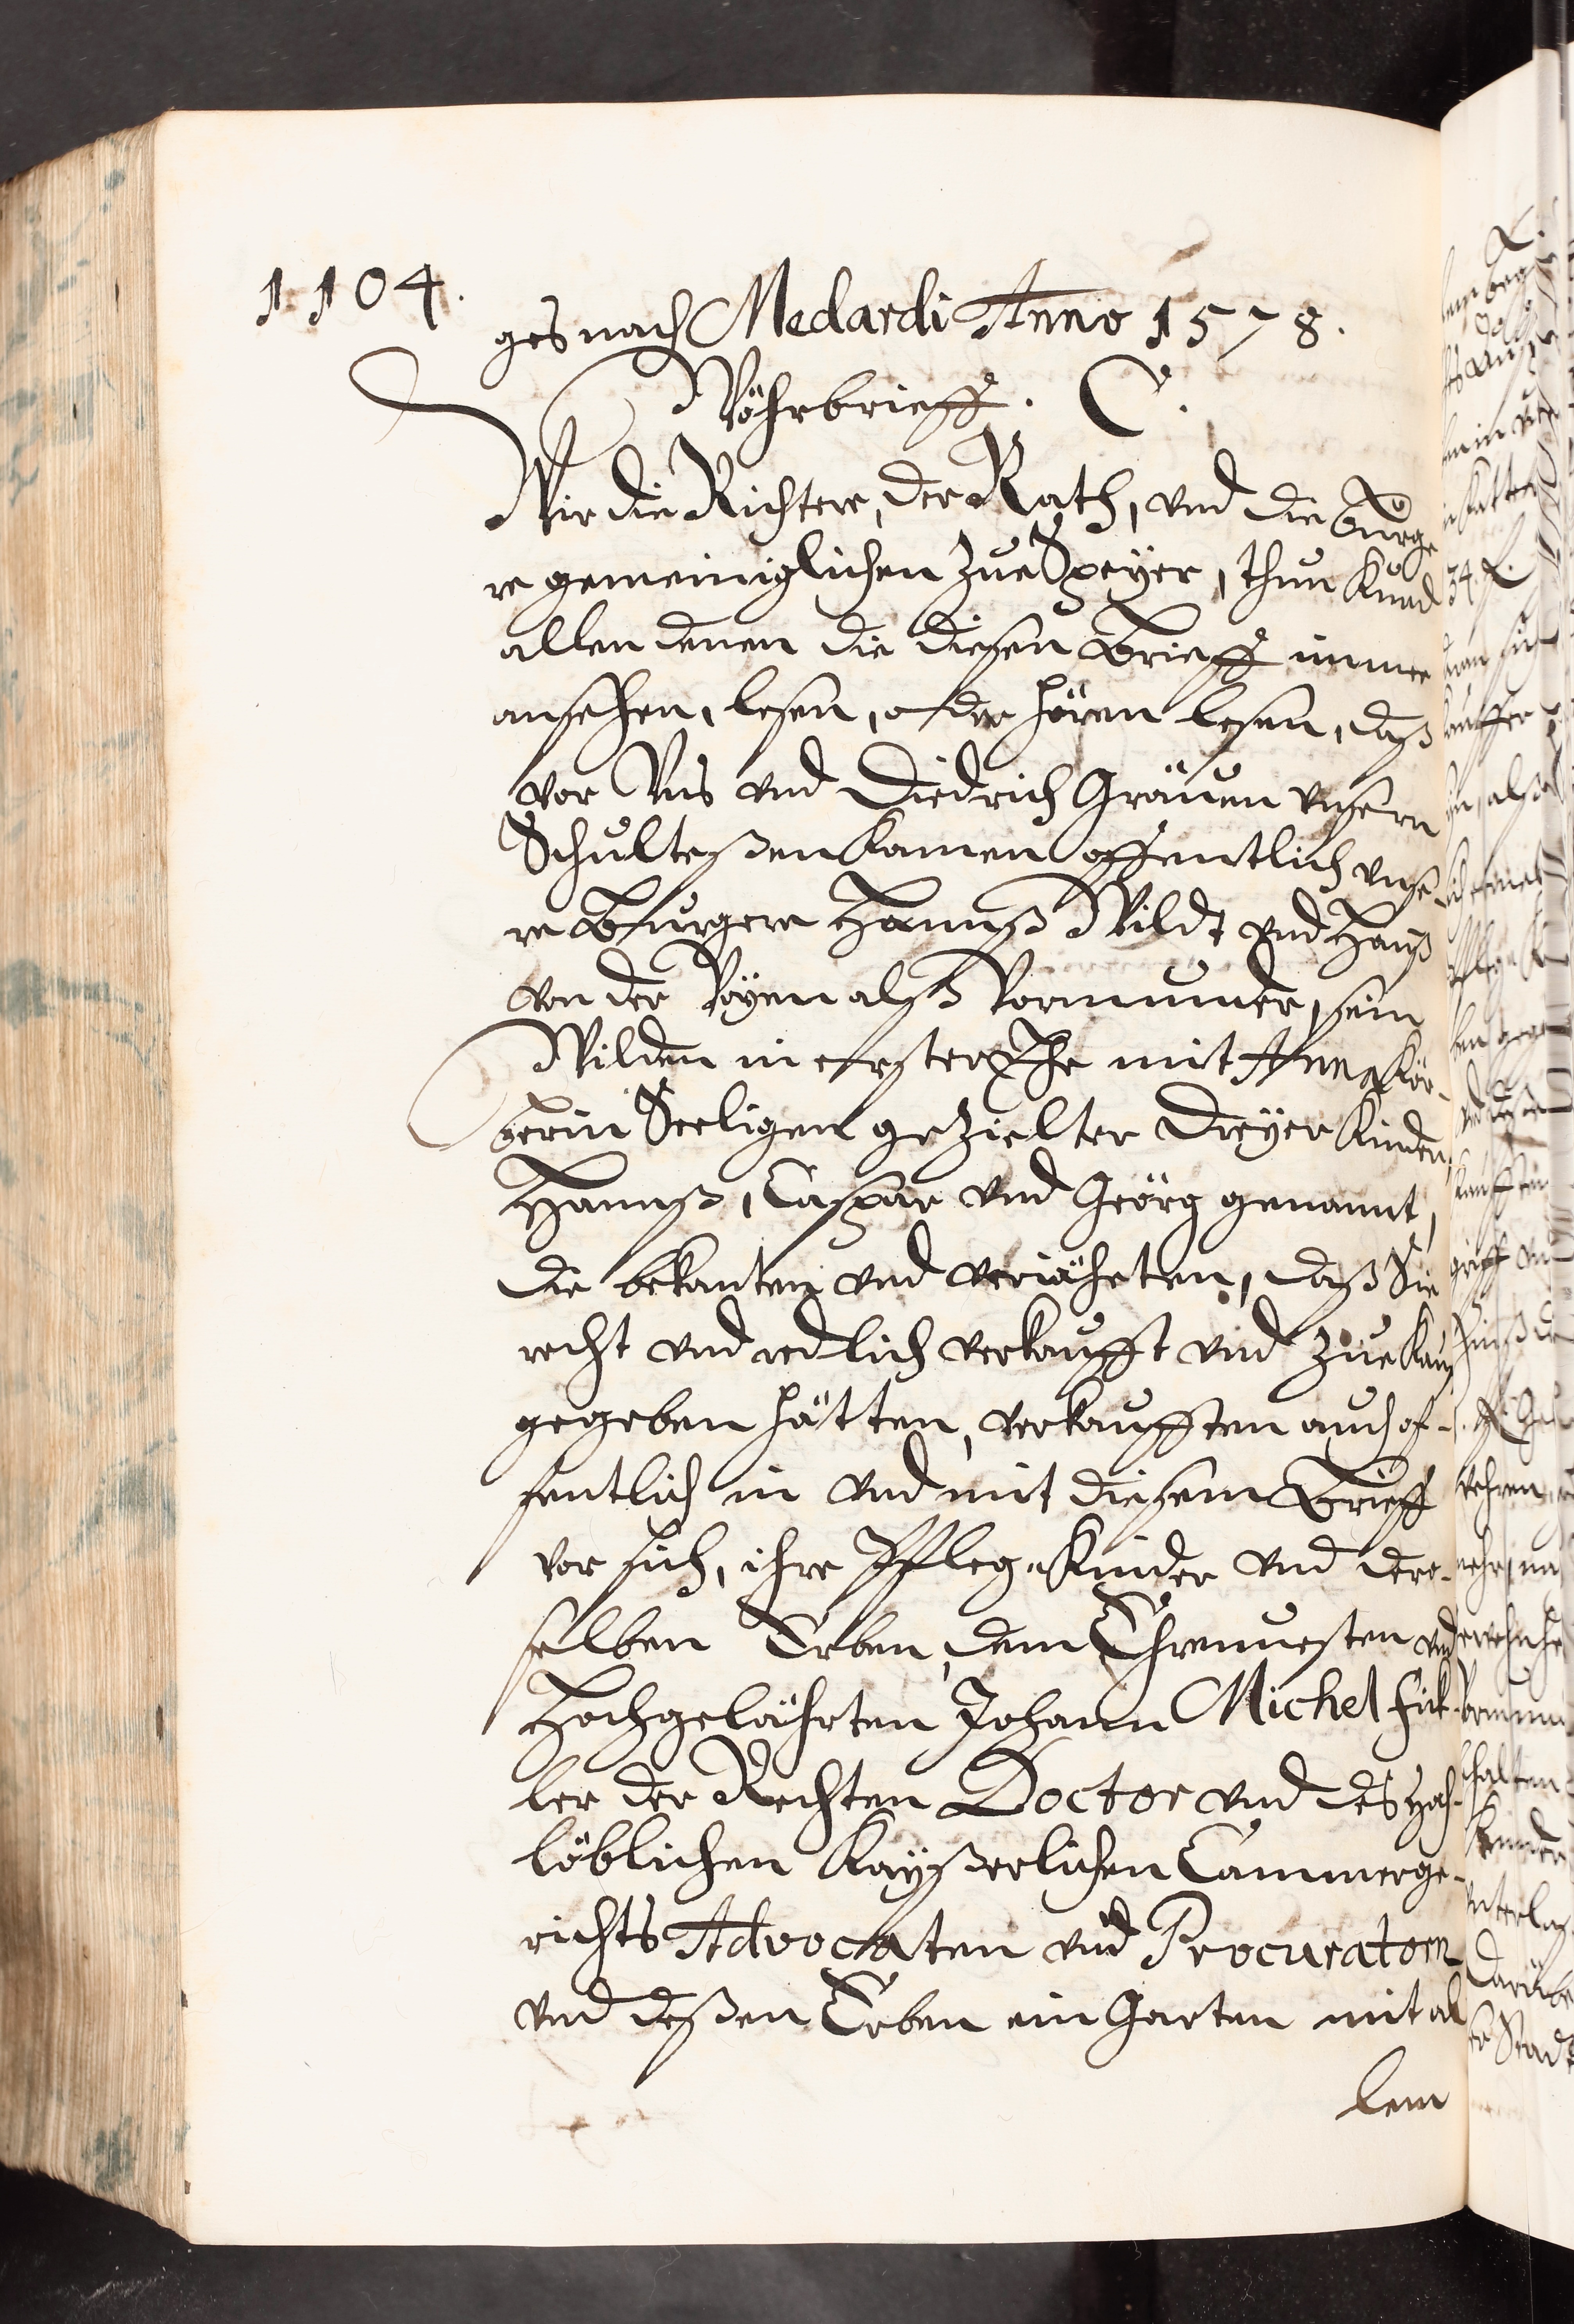 1104.
ges nach Medardi Anno 1578.
Währbrieff. C.
Wir die Richtere, der Rath, vnd die Bürge
re gemeiniglichen zue Speyer, thun kund
allen denen die diesen Brieff immer
ansehen, lesen, oder hören lesen, daß
vor Vns vnd Diedrich Gräuen vnsern
Schulteßen kamen offentlich vnse-
re Burgere Hannß Wildt vnd Hanß
von der als Vormunder, sein
Wilden in erster Ehe mit Anna Kör-
berin Seeligen gezielter dreyer Kinder,
Hannß, Caspar vnd Geörg genannt,
die bekanten vnd veriäheten, daß Sie
recht vnd redlich verkaufft vnd zue kauff
gegeben hätten, verkaufften auch of-
fentlich in vnd mit diesem Brieff
vor sich, ihre Pfleg-Kinder vnd dero-
selben Erben, dem Ehrnuesten vnd
Hochgelährten Johann Michel Fick-
ler der Rechten Doctor vnd des Hoch-
löblichen Kayßerlichen Cammerge-
richts Advocaten vnd Procuratorn
vnd deßen Erben ein Garten mit al
lem